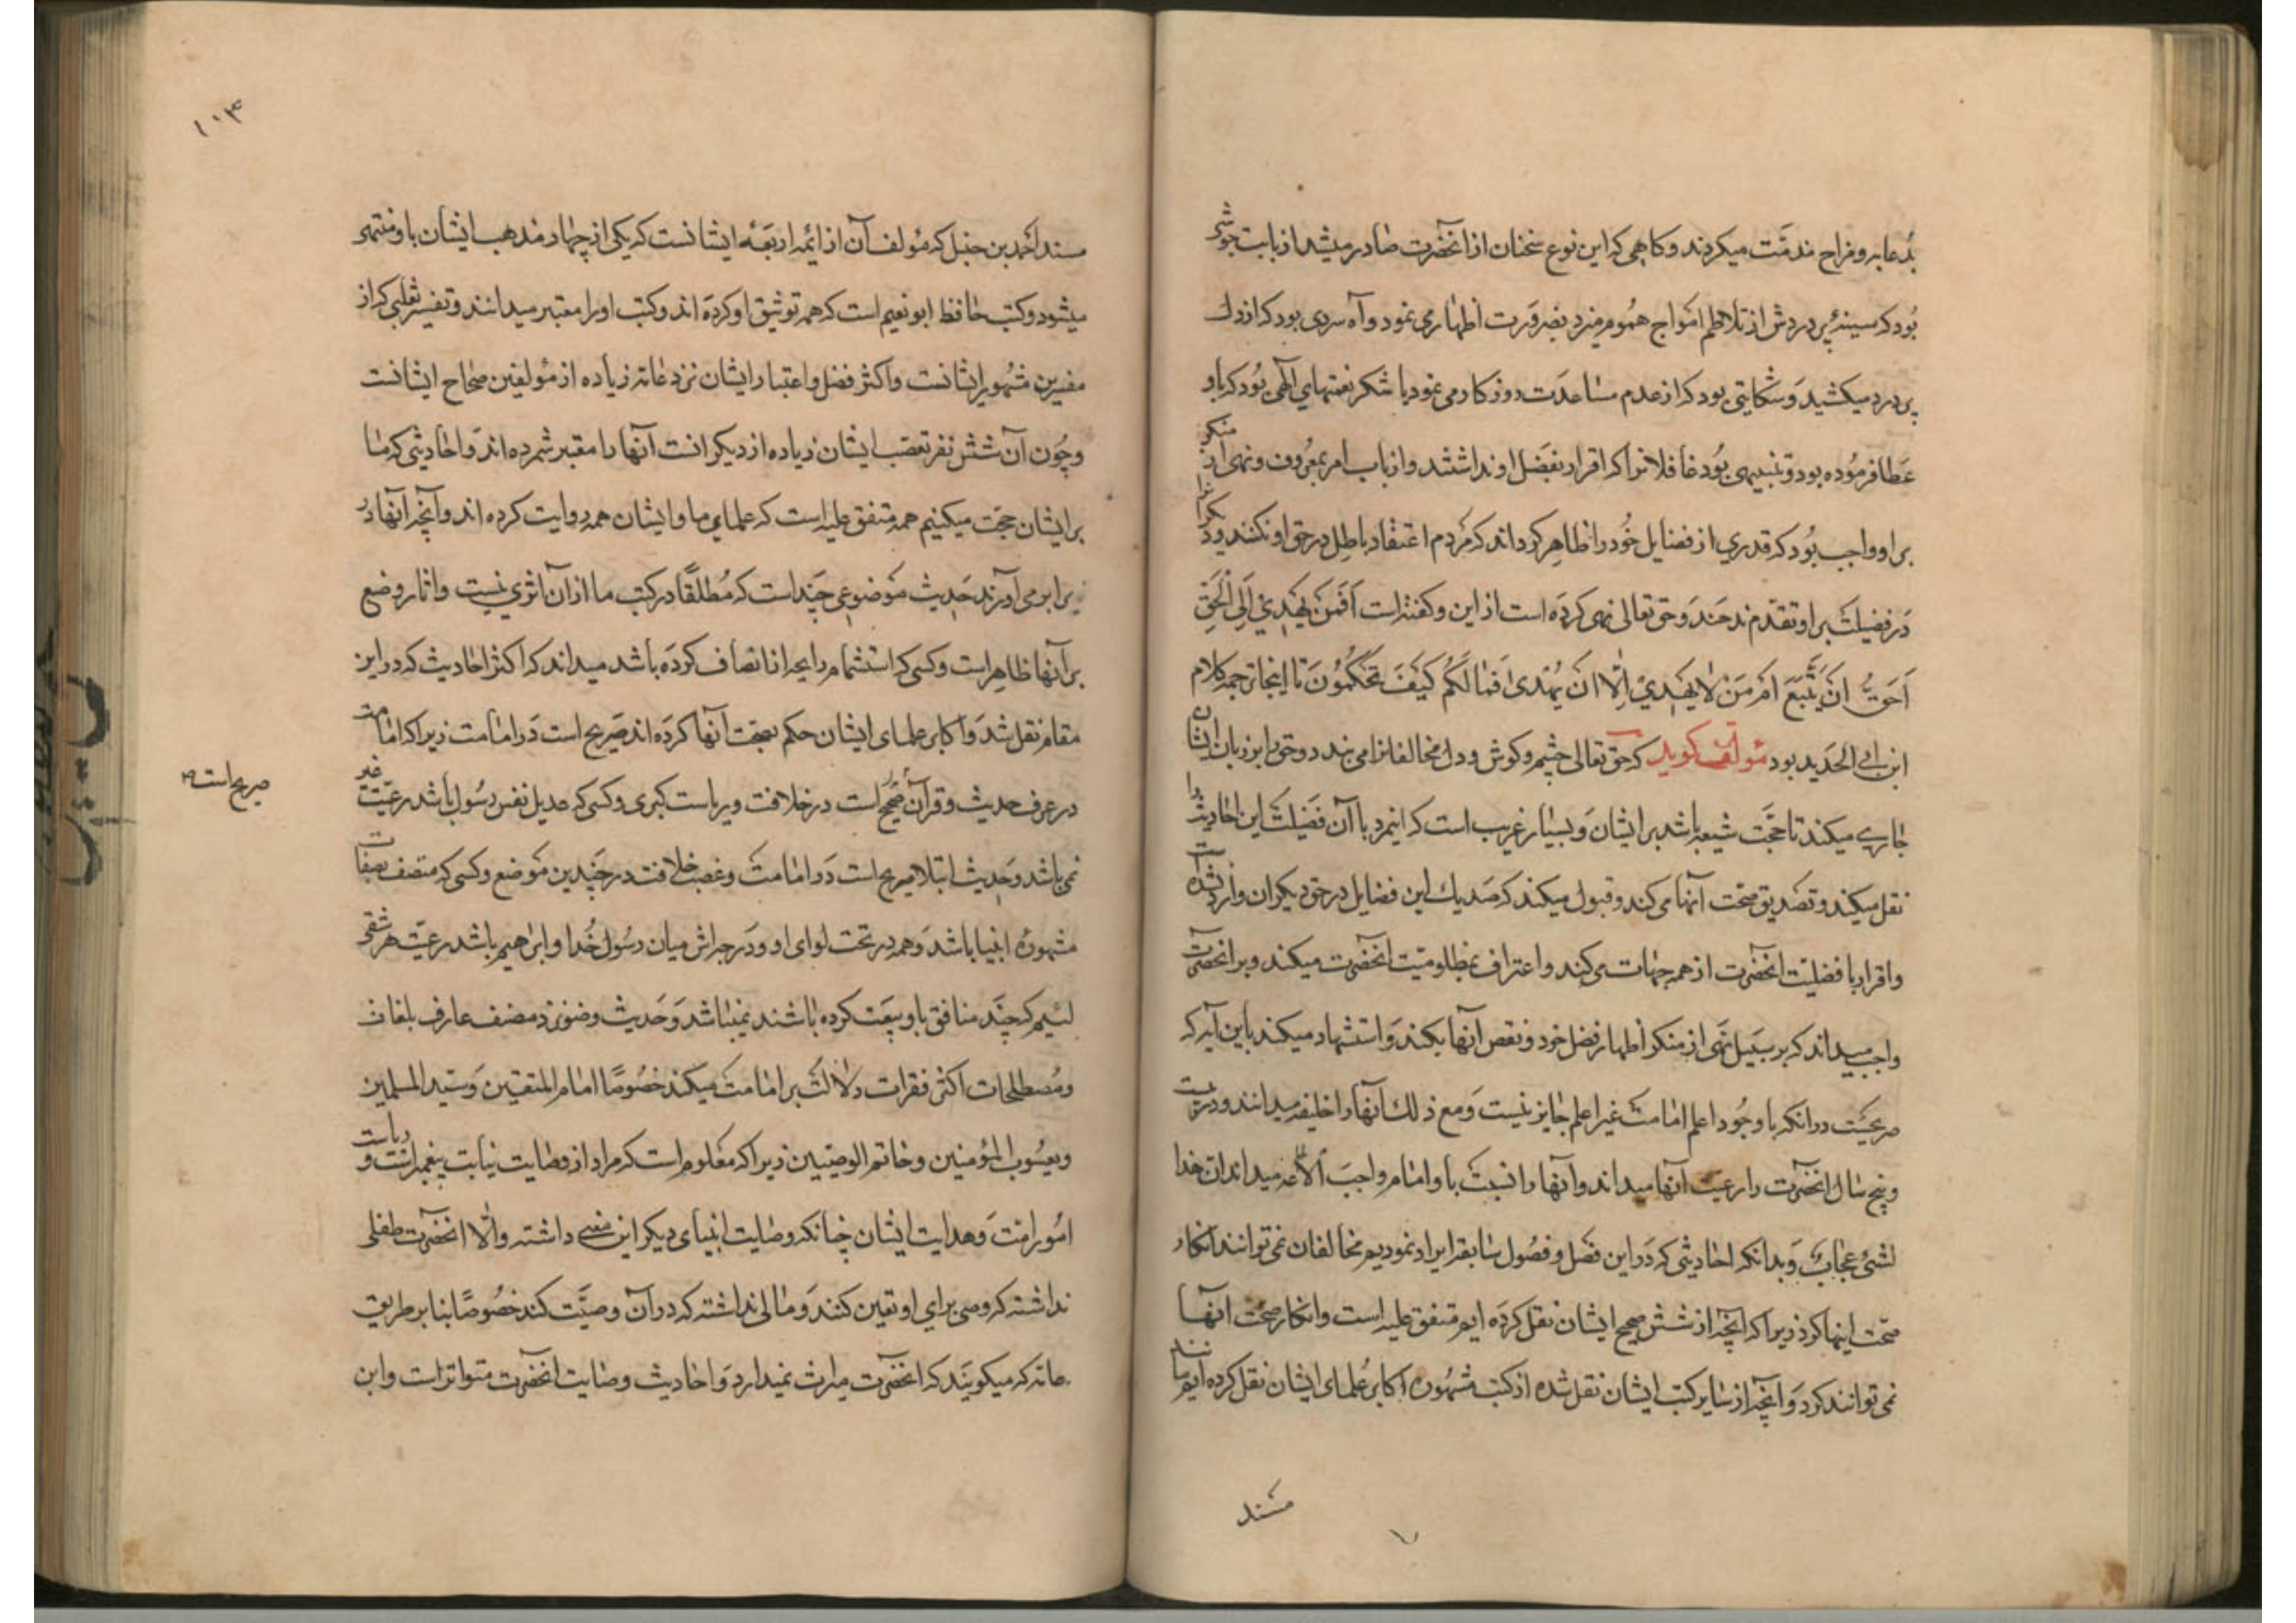 بدعابه و مزاح مذمت میکردند و کاهی که این نوع سخنان از آنحضرت صادر میشد از بابت جوششی
بود که سینهٔ پر دردش از تلاطم امواج هموم میزد بضرورت اظهار می نمود و آه سردی بود که از دل
پر درد میکشید و شکایتی بود که از عدم مساعدت روزکار می نمود یا شکر نعمتهای الهی بود که باو
عطا فرموده بود و تنبیهی بود غافلانرا که اقرار بفضل او نداشتند و از باب امر بمعروف و نهی از منکر
بر او واجب بود که قدری از فضایل خود را ظاهر کرداند که مردم اعتقاد باطل در حق او نکنند و دیکرانرا
در فضیلت بر او تقدم ندهند و حق تعالی نهی کرده است از این و کفته است اَفَمَن یَهدِی اِلَی الحَقِّ
اَحَقُّ اَن یُتَّبَعَ اَمَّن لا یَهِدِّی اِلّا اَن یُهدی فَما لَکُم کَیفَ تَحکُمُونَ تا اینجا ترجمه کلام
ابن ابی الحدید بود مؤلف کوید که حق تعالی چشم و کوش و دل مخالفانرا می بندد و حق را بر زبان ایشان
جاری میکند تا حجت شیعه باشد بر ایشان و بسیار غریب است که اینمرد با آن فضیلت این احادیث را
نقل میکند و تصدیق صحت آنها می کند و قبول میکند که صد یك این فضایل در حق دیکران وارد نشده است
و اقرار بافضلیت آنحضرت از همه جهات می کند و اعتراف بمظلومیت آنحضرت میکند و بر آنحضرت
واجب میداند که بر سبیل نهی از منکر اظهار فضل خود و نقص آنها بکند و استشهاد میکند باین آیه که
صریحست در آنکه با وجود اعلم امامت غیر اعلم جایز نیست و مع ذلك آنها را خلیفه میدانند و در بیست
و پنج سال آنحضرت را رعیت آنها میداند و آنها را نسبت باو امام واجب الاطاعه میداند ان هذا
لشئ عجاب و بدانکه احادیثی که در این فصل و فصول سابقه ایراد نمودیم مخالفان نمی توانند انکار
صحت اینها کرد زیرا که آنچه از شش صحیح ایشان نقل کرده ایم متفق علیه است و انکار صحت آنها
نمی توانند کرد و آنچه از سایر کتب ایشان نقل شده از کتب مشهوره اکابر علمای ایشان نقل کرده ایم مانند
مسند
۱۰۳
مسند احمد بن حنبل که مؤلف آن از ائمه اربعهٔ ایشانست که یکی از چهار مذهب ایشان باو منتهی
میشود و کتب حافظ ابو نعیم است که همه توثیق او کرده اند و کتب او را معتبر میدانند و تفسیر ثعلبی که از
مفسرین مشهور ایشانست و اکثر فضل و اعتبار ایشان نزد عامه زیاده از مؤلفین صحاح ایشانست
و چون آن شش نفر تعصب ایشان زیاده از دیکرانست آنها را معتبر شمرده اند و احادیثی که ما
بر ایشان حجت میکنیم همه متفق علیه است که علمای ما و ایشان همه روایت کرده اند و آنچه آنها در
برابر می آورند حدیث موضوعی چند است که مطلقاً در کتب ما از آن اثری نیست و اثار وضع
بر آنها ظاهر است و کسی که استشمام رایحه از انصاف کرده باشد میداند که اکثر احادیث که در این
مقام نقل شد و اکابر علمای ایشان حکم بصحت آنها کرده اند صریح است در امامت زیرا که امامت
در عرف حدیث و قرآن صریح است در خلافت و ریاست کبری و کسی که عدیل نفس رسول باشد رعیت غیر
صریح است
نمی باشد و حدیث ابتلا صریح است در امامت و غصب خلافت در چندین موضع و کسی که متصف بصفات
مشهوره انبیا باشد و همه در تحت لوای او و درجه اش میان رسول خدا و ابراهیم باشد رعیت هر شقی
لئیم که چند منافق باو بیعت کرده باشند نمیباشد و حدیث وضو نزد منصف عارف بلغات
و مصطلحات اکثر فقرات دلالت بر امامت میکند خصوصاً امام المتقین و سید المسلمین
و یعسوب المؤمنین و خاتم الوصیین زیرا که معلوم است که مراد از وصایت نیابت پیغمبر است و ریاست
امور امت و هدایت ایشان چنانکه وصایت انبیای دیکر این معنی داشته و الا آنحضرت طفلی
نداشته که وصی برای او تعین کنند و مالی نداشته که در آن وصیت کند خصوصاً بنا بر طریق
عامه که میکویند که آنحضرت میراث نمیدارد و احادیث وصایت آنحضرت متواتر است و ابن